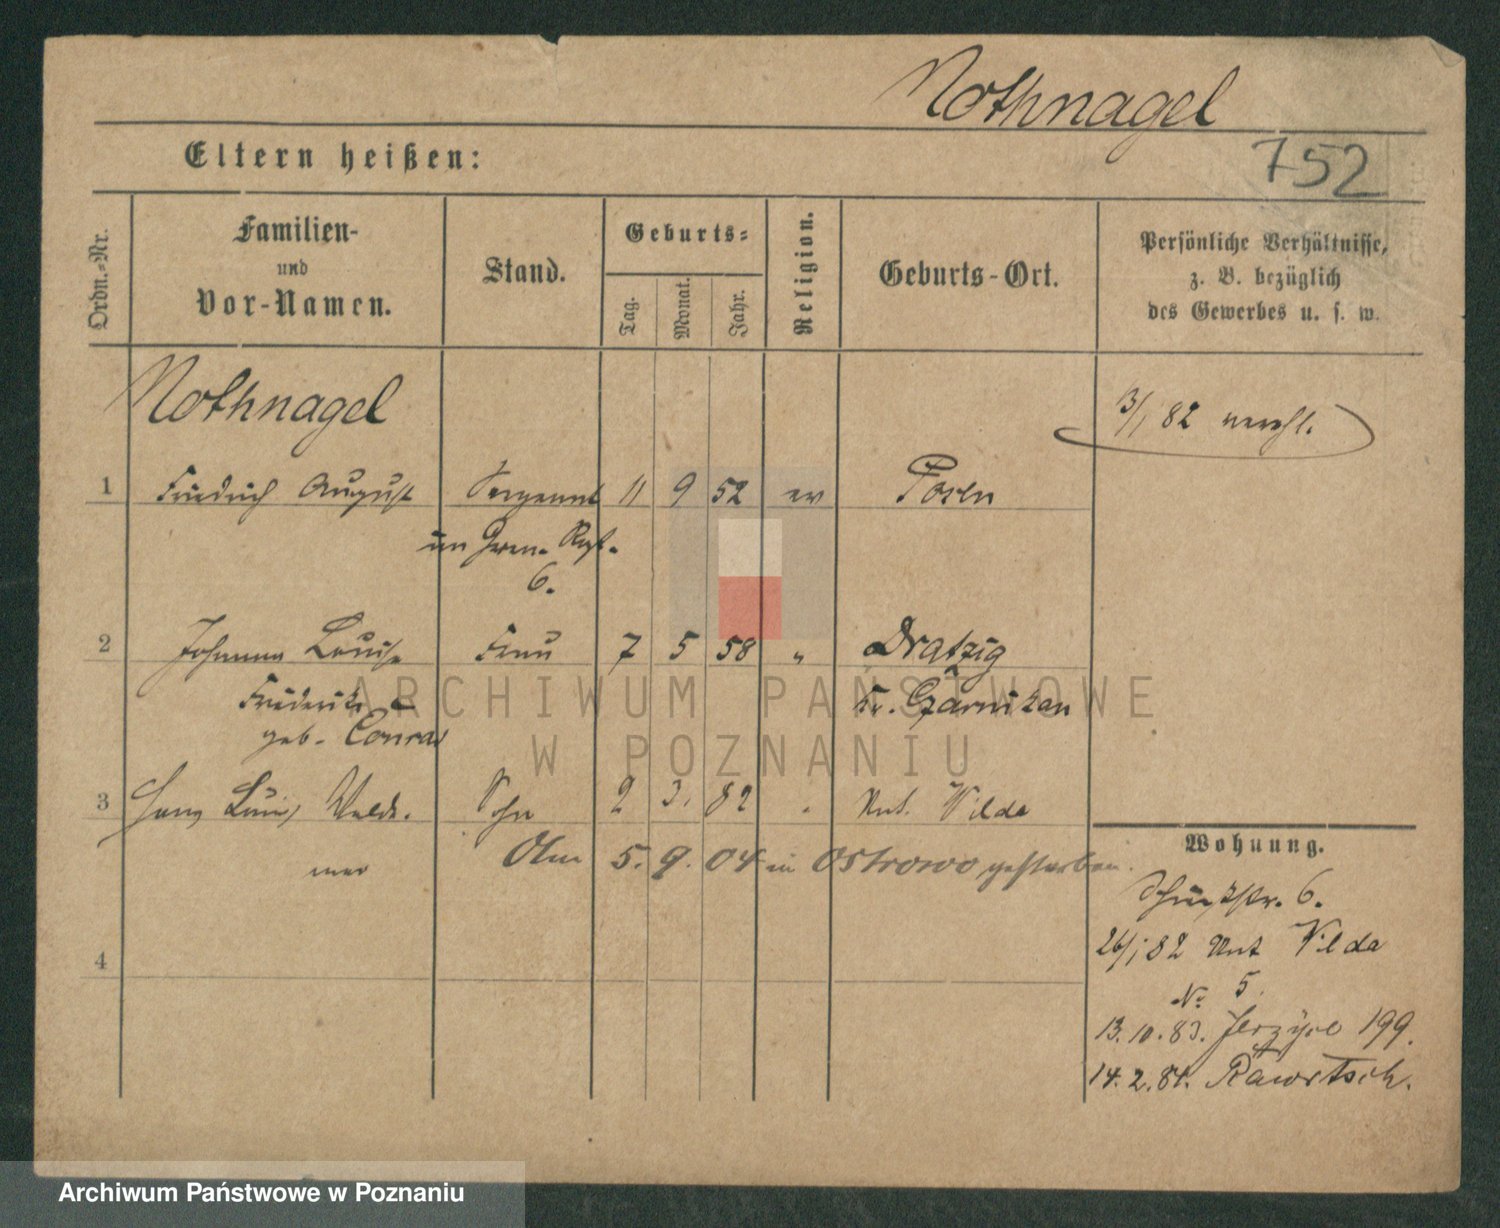 Nothnagel
Eltern heißen:
752
Ordn.-Nr.
Familien-
und
Vor-Namen.
Stand.
Geburts-
Tag.
Monat.
Jahr.
Religion.
Geburts-Ort.
Persönliche Verhältnisse,
z. B. bezüglich
des Gewerbes u. s. w.
Nothnagel
3/1 82 verehl.
1 Friedrich August Sergeant 11 9 52 ev Posen
im Gren. Rgt.
6.
2 Johanna Louise Frau 7 5 58 " Dratzig
Friederike Kr. Czarnikau
geb. Conrad
3 Hans Louis Walde- Sohn 2 3. 82 Unt. Wilda
mar
5. 9. 04 in Ostrowo gestorben.
4
Wohnung.
6.
26/1 82 Unt Wilda
No 5.
13.10.83. Jerzyce 199.
14.2.84. Rawitsch.
ARCHIWUM PAŃSTWOWE
W POZNANIU
Archiwum Państwowe w Poznaniu